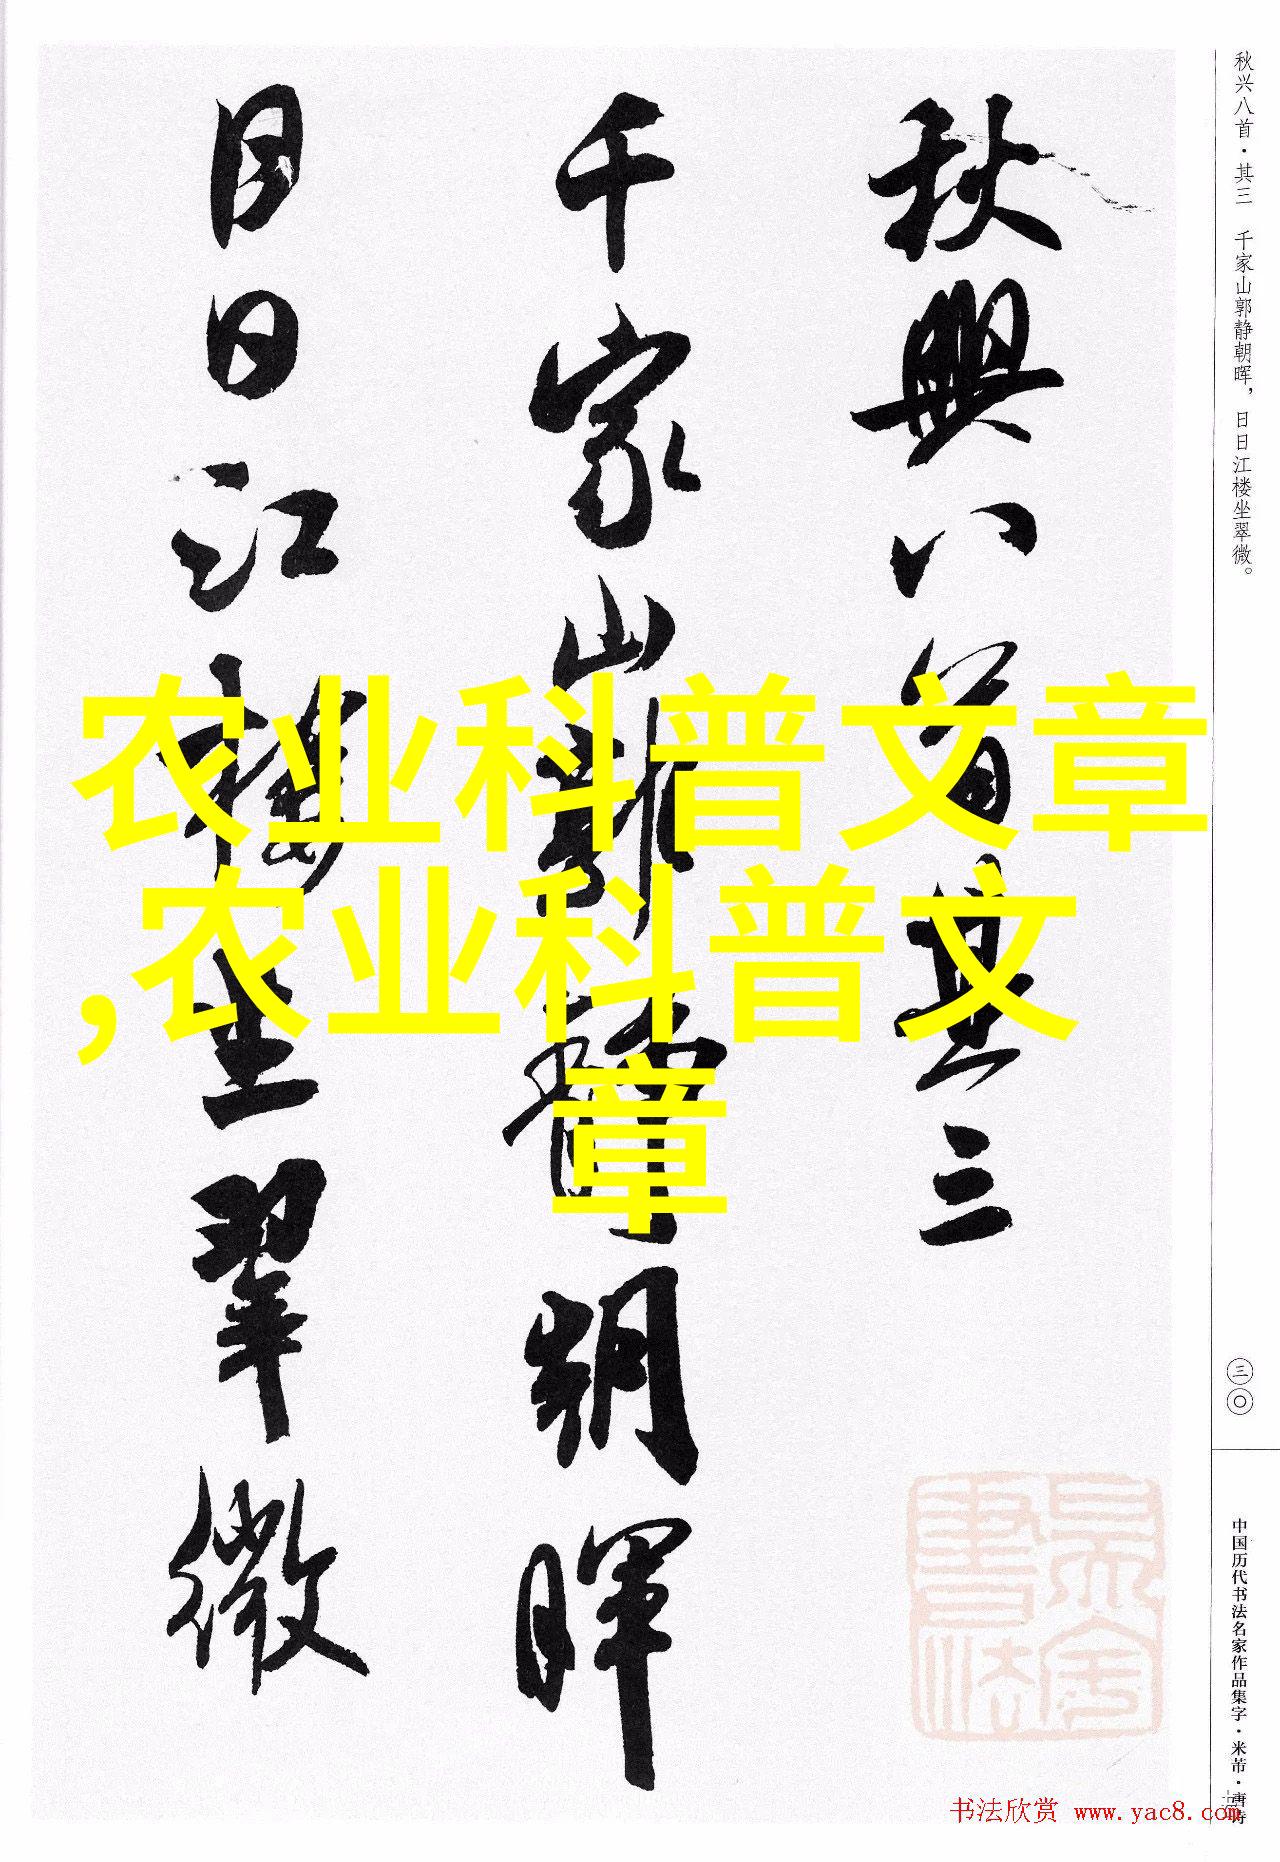 秋兴八首·其三 千家山郭静朝晖，日日江楼坐翠微。
三〇
中国历代书法名家作品集字·米芾·唐诗
秋興八首其三
千家山郭静朝暉
日日江樓坐翠微
农业科普文章
,农业科普文
章
书法欣赏 www.yac8.com